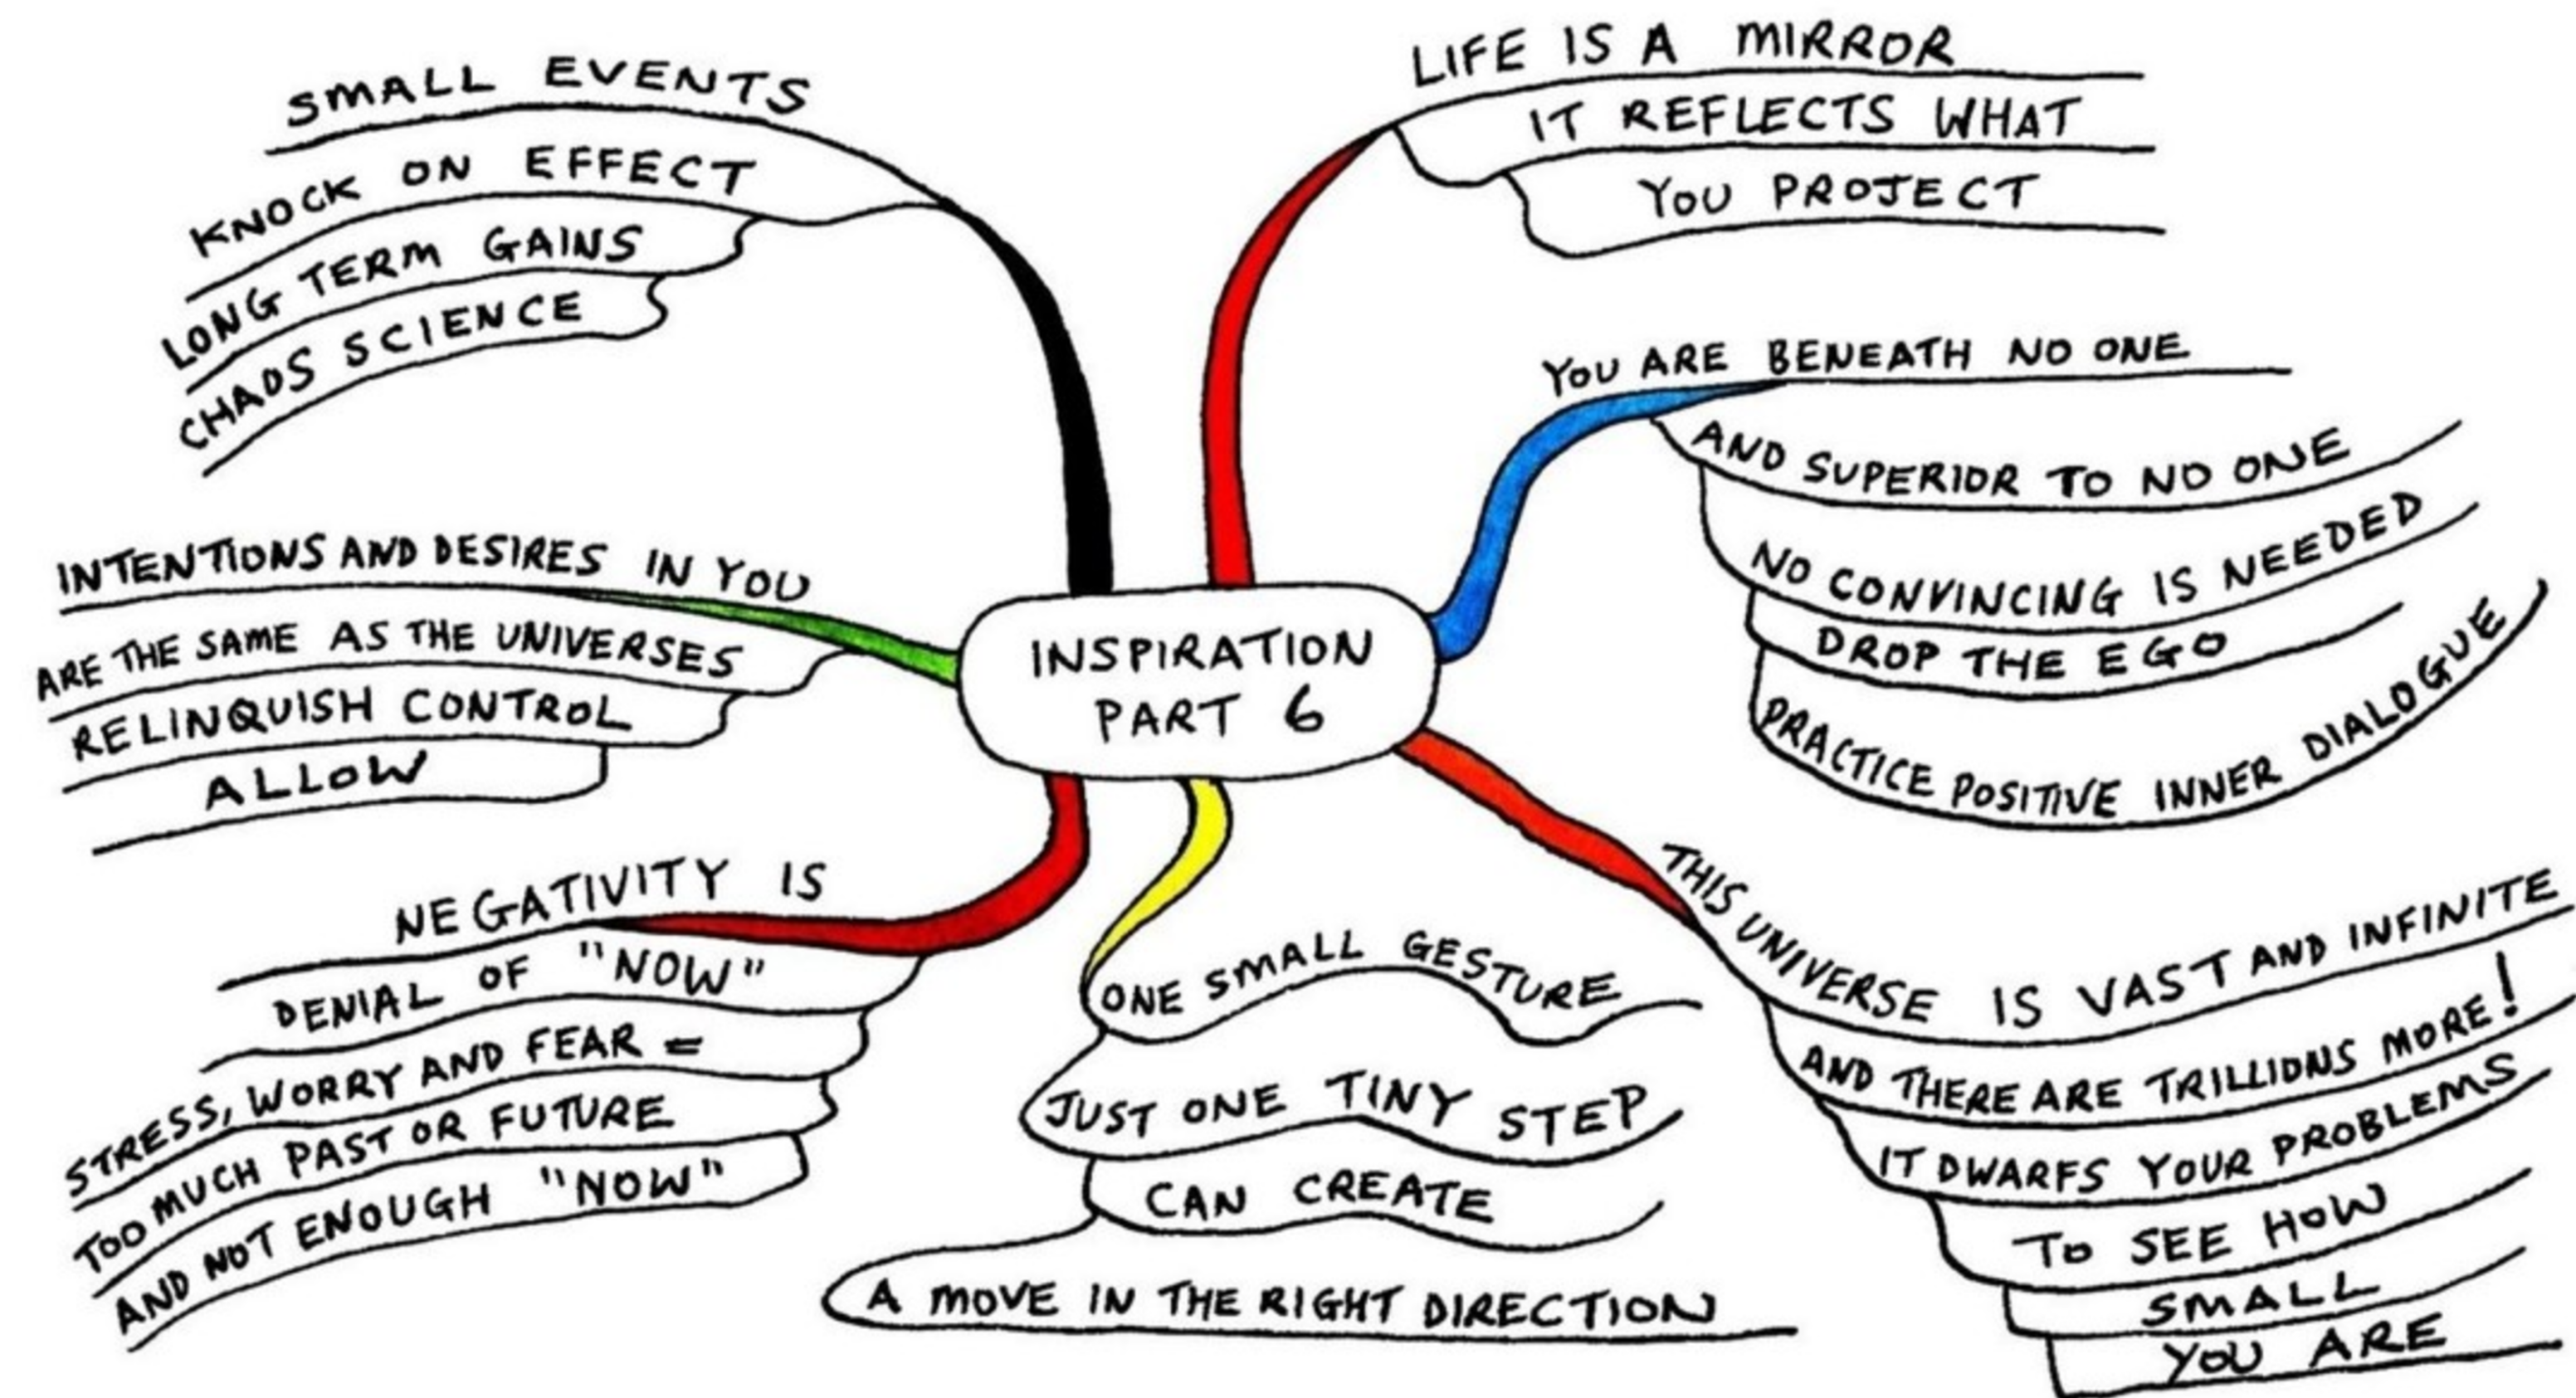 INSPIRATION
PART 6
LIFE IS A MIRROR
IT REFLECTS WHAT
YOU PROJECT
YOU ARE BENEATH NO ONE
AND SUPERIOR TO NO ONE
NO CONVINCING IS NEEDED
DROP THE EGO
PRACTICE POSITIVE INNER DIALOGUE
THIS UNIVERSE IS VAST AND INFINITE
AND THERE ARE TRILLIONS MORE!
IT DWARFS YOUR PROBLEMS
TO SEE HOW
SMALL
YOU ARE
ONE SMALL GESTURE
JUST ONE TINY STEP
CAN CREATE
A MOVE IN THE RIGHT DIRECTION
NEGATIVITY IS
DENIAL OF "NOW"
STRESS, WORRY AND FEAR =
TOO MUCH PAST OR FUTURE
AND NOT ENOUGH "NOW"
INTENTIONS AND DESIRES IN YOU
ARE THE SAME AS THE UNIVERSES
RELINQUISH CONTROL
ALLOW
SMALL EVENTS
KNOCK ON EFFECT
LONG TERM GAINS
CHAOS SCIENCE